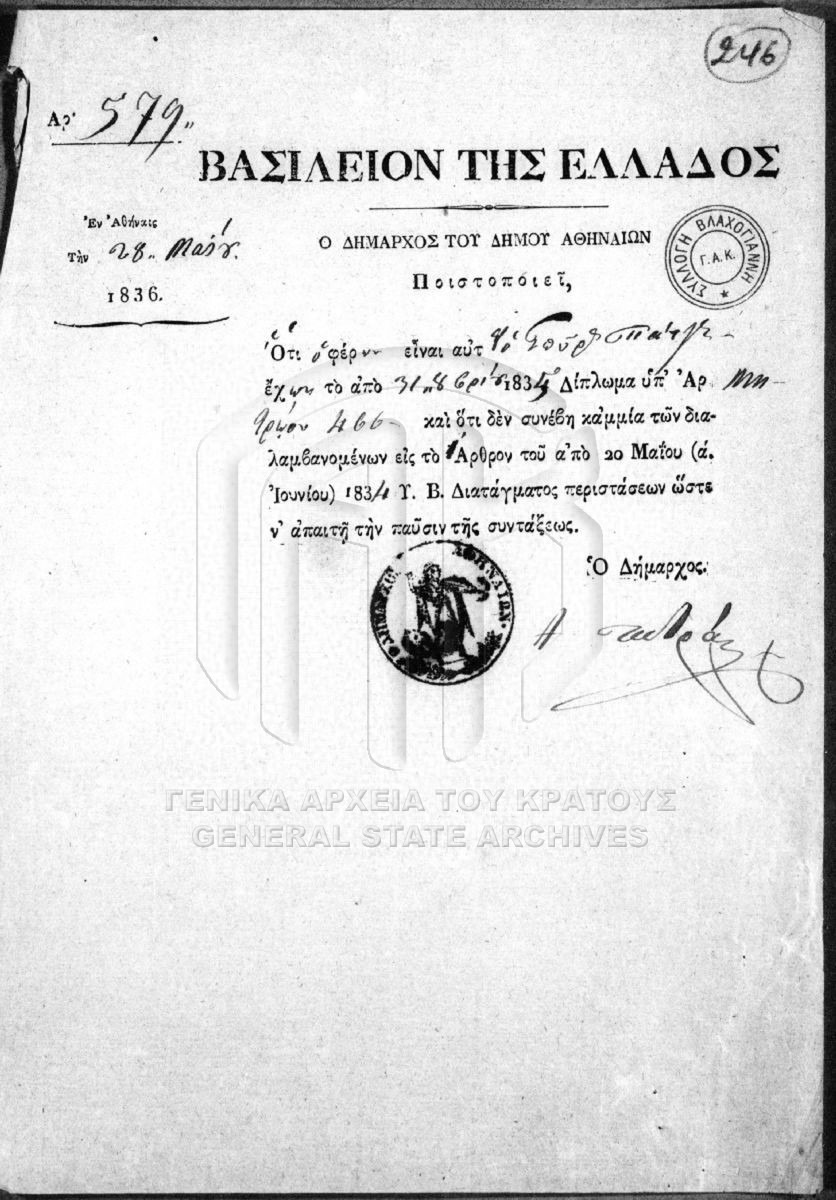 246
Αρ' 579.
ΒΑΣΙΛΕΙΟΝ ΤΗΣ ΕΛΛΑΔΟΣ
Ἐν Ἀθήναις
Τὴν 28. Μαΐου
1836.
Ο ΔΗΜΑΡΧΟΣ ΤΟΥ ΔΗΜΟΥ ΑΘΗΝΑΙΩΝ
Ποιστοποιεῖ,
ΣΥΛΛΟΓΗ ΒΛΑΧΟΓΙΑΝΝΗ
Γ.Α.Κ.
Ὅτι ὁ φέρων εἶναι αὐτὸς ὁ
ἔχων τὸ ἀπὸ 31 8βρίου 1835 Δίπλωμα ὑπ' Ἀρ Μη-
τρώου 466 καὶ ὅτι δὲν συνέβη καμμία τῶν δια-
λαμβανομένων εἰς τὸ Ἄρθρον τοῦ ἀπὸ 20 Μαΐου (ά.
Ἰουνίου) 1834 Υ. Β. Διατάγματος περιστάσεων ὥστε
ν' ἀπαιτῇ τὴν παῦσιν τῆς συντάξεως.
Ὁ Δήμαρχος.
ΑΘΗΝΑΙΩΝ
ΓΕΝΙΚΑ ΑΡΧΕΙΑ ΤΟΥ ΚΡΑΤΟΥΣ
GENERAL STATE ARCHIVES